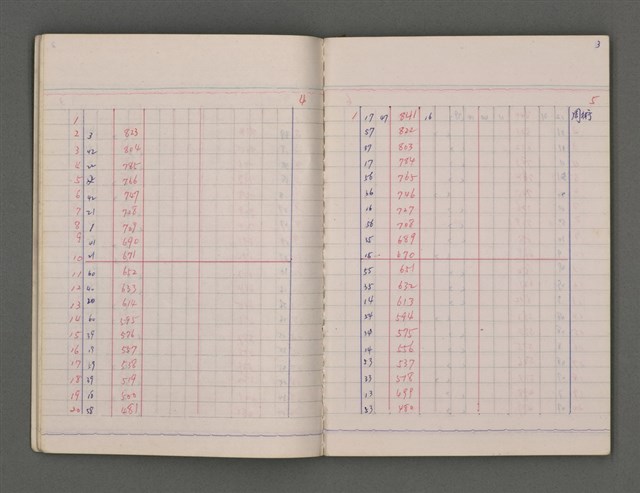 4
1
2 3 823
3 42 804
4 785
5 766
6 42 747
7 21 728
8 1 709
9 41 690
10 21 671
11 60 652
12 633
13 20 614
14 60 595
15 39 576
16 557
17 39 538
18 39 519
19 18 500
20 58 481
3
5
1 17 47 841 16
57 822
37 803
17 784
56 765
36 746
16 727
56 708
35 689
15 670
55 651
35 632
14 613
54 594
34 575
14 556
53 537
33 518
13 499
53 480